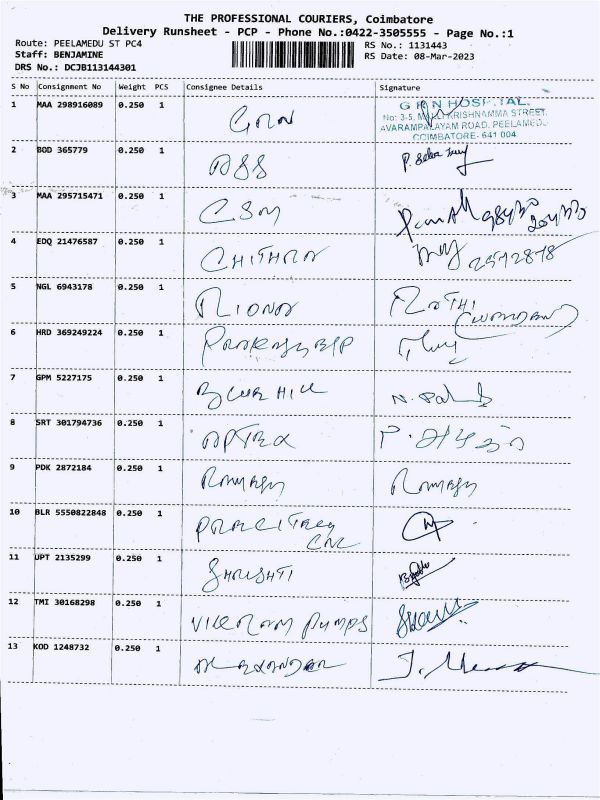 THE PROFESSIONAL COURIERS, Coimbatore
Delivery Runsheet - PCP - Phone No.:0422-3505555 - Page No.:1
Route: PEELAMEDU ST PC4
Staff: BENJAMINE
DRS No.: DCJB113144301
RS No.: 1131443
RS Date: 08-Mar-2023
S No Consignment No Weight PCS Consignee Details Signature
1 MAA 298916089 0.250 1 GRN
G R N HOSPITAL.
No: 3-5, MALLI KRISHNAMMA STREET,
AVARAMPALAYAM ROAD, PEELAMEDU,
COIMBATORE- 641 004
2 BOD 365779 0.250 1 ASS
3 MAA 295715471 0.250 1 CSM
4 EDQ 21476587 0.250 1 CHITHRA
5 NGL 6943178 0.250 1 RIONA RATHI
6 HRD 369249224 0.250 1
7 GPM 5227175 0.250 1 BLUE HILL
8 SRT 301794736 0.250 1 APTEX
9 PDK 2872184 0.250 1 Ramesh Ramesh
10 BLR 5550822848 0.250 1
CNC
11 UPT 2135299 0.250 1 SHRISHTI
12 TMI 30168298 0.250 1 VIKRAM PUMPS
13 KOD 1248732 0.250 1 ALEXANDER